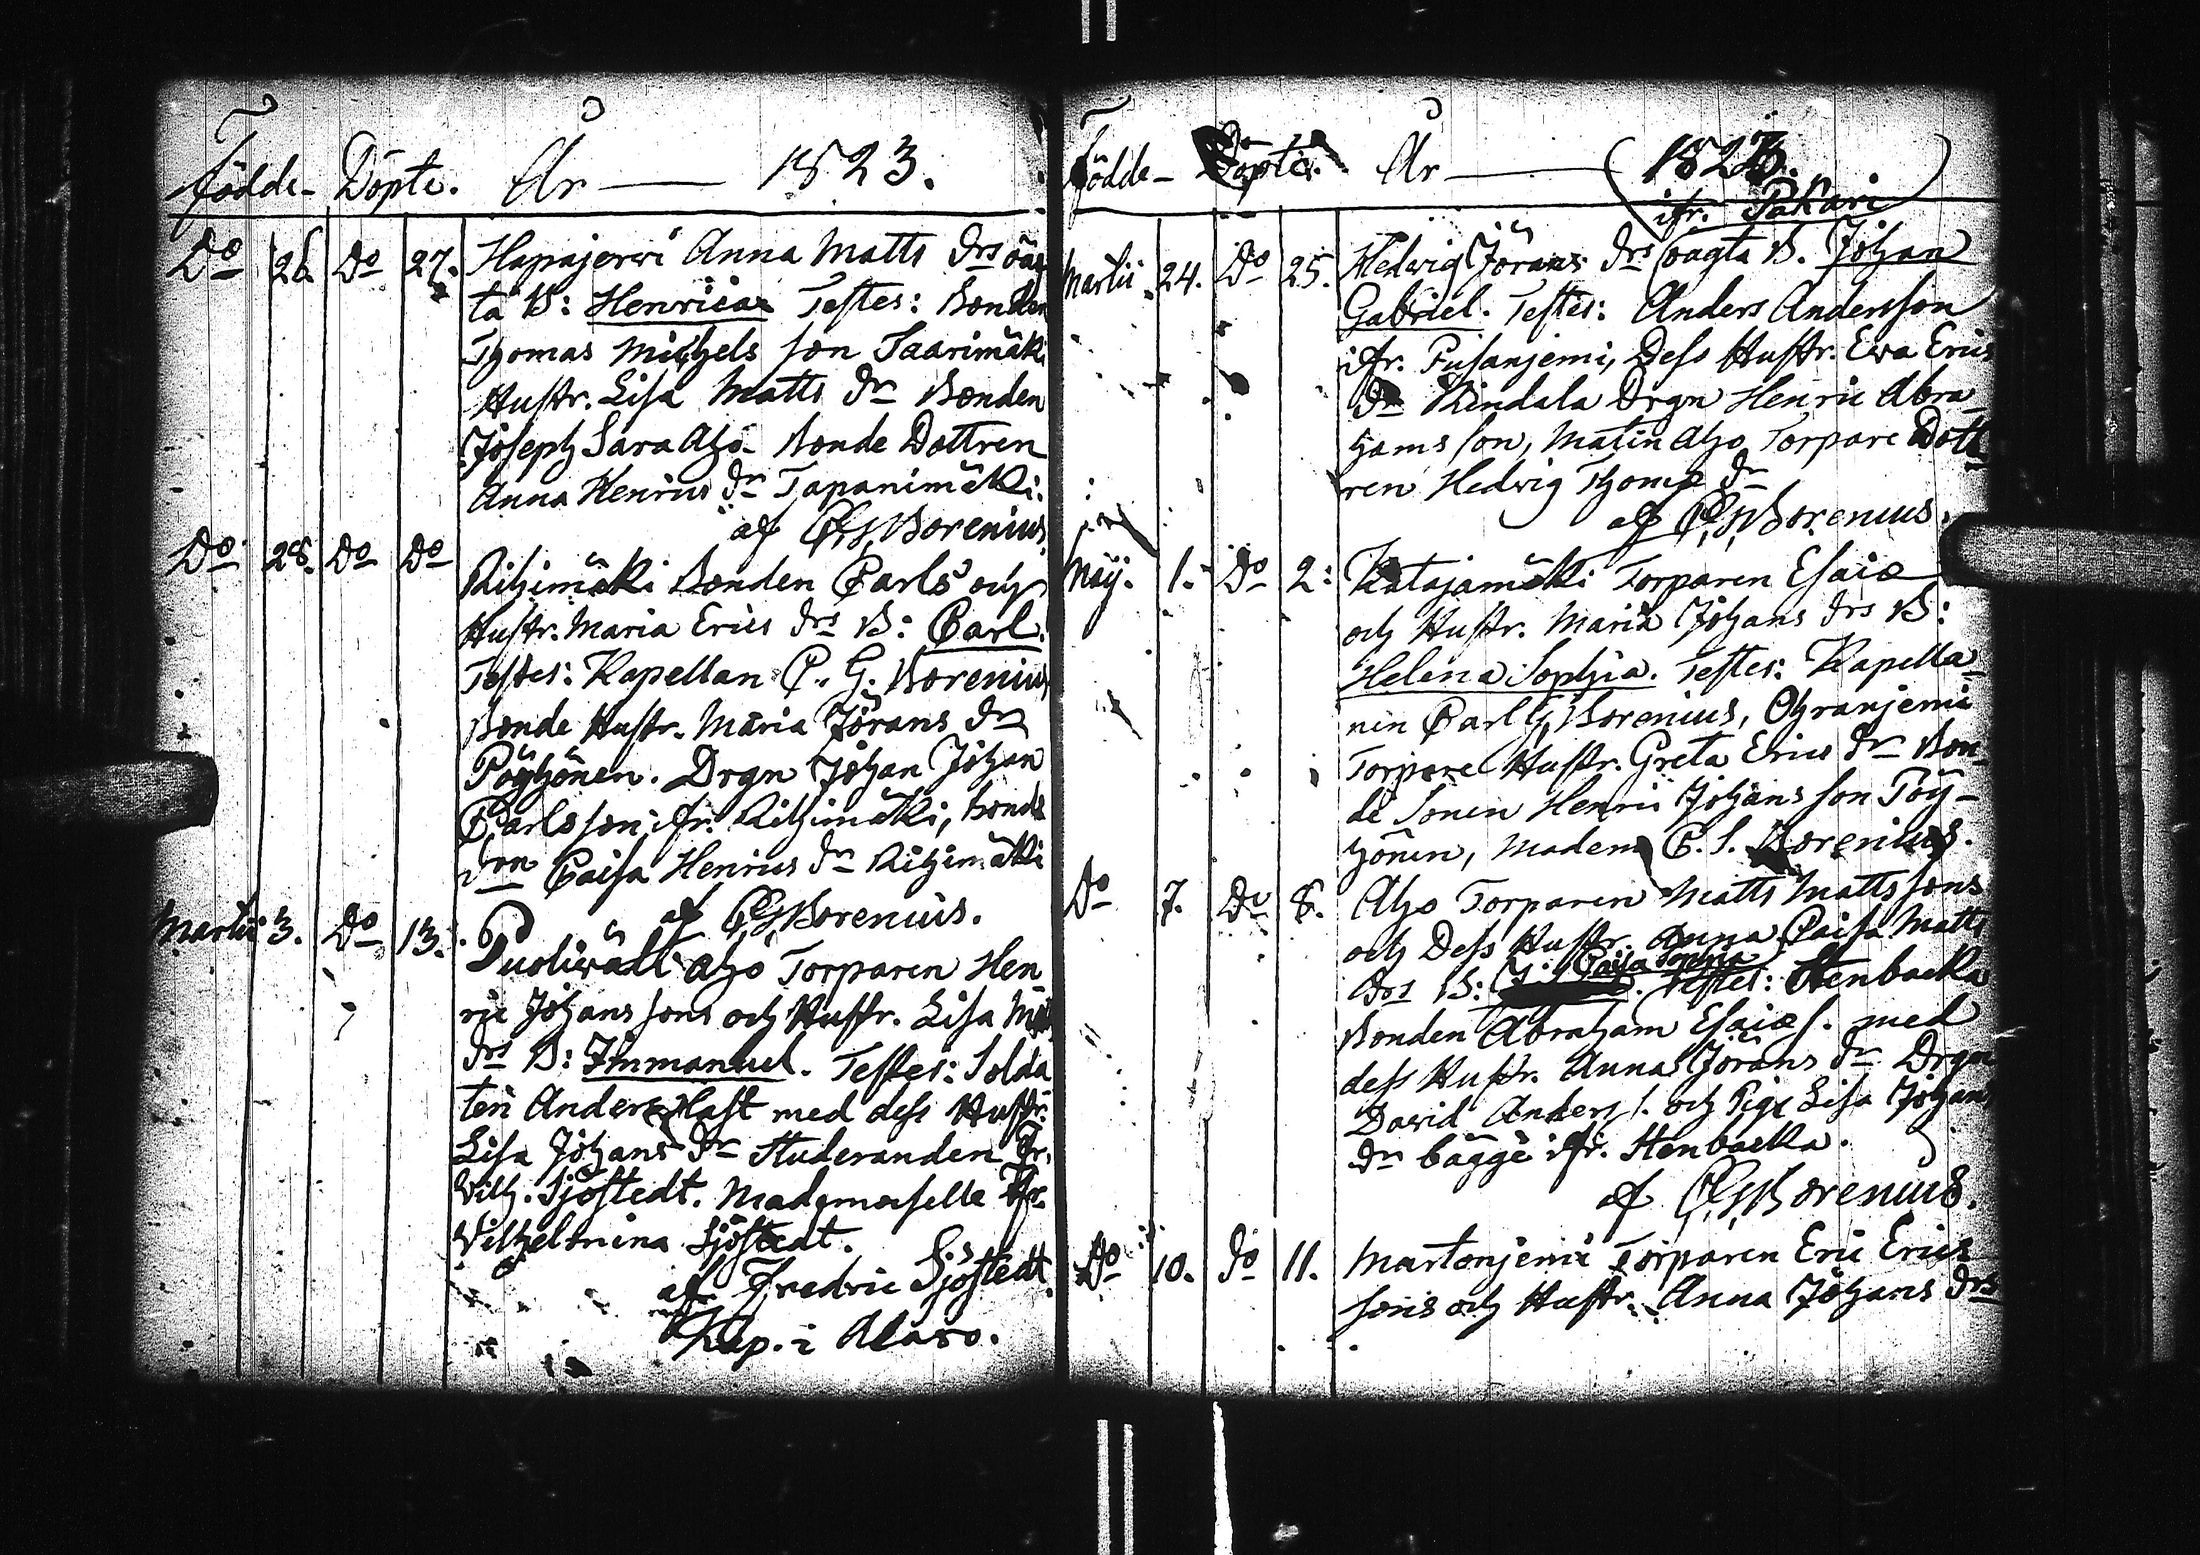 Födde - Döpte. År — 1823.
Do 26. Do 27. Hapajerwi Anna Matts drs oäg
ta B: Henrica Testes: Bonden
Thomas Michels son Saarimäki
Hustr. Lisa Matts dr Bonden
Joseph Sara Aho. Bonde Dottren
Anna Henrics dr Tapanimäki.
af C.G. Borenius.
Do 28. Do Do
Rihimäki Bonden Carls och
Hustr. Maria Erics drs B: Carl.
Testes: Kapellan C. G. Borenius
Bonde Hustr. Maria Jörans dr
Pöyhönen. Drgn Johan Johan
Carlsson ifr. Rihimäki, bonde
drn Caisa Henrics dr Rihimäki
af C.G. Borenius.
Martii 3. Do 13. Puoliwäli Aho Torparen Hen
ric Johans sons och Hustr. Lisa
drs B: Immanuel. Testes: Solda
ten Anders Hast med dess Hustr.
Lisa Johans dr Studeranden Fr.
Vilh. Sjöstedt. Mademoiselle Fr.
Vilhelmina Sjöstedt.
af Fredric Sjöstedt
Kap. i Alavo.
Födde - Döpte. År — 1823.
ifr. Pakari
Martii 24. Do 25. Hedwig Jörans drs oägta B. Johan
Gabriel. Testes: Anders Andersson
ifr. Pusanjemi, Dess Hustr. Ewa Erics
dr Kindala Drgn Henric Abra-
hams son, Matin Aho Torpare Dott-
ren Hedwig Thomæ dr
af C.G. Borenius.
Maij. 1. Do 2: Katajamäki Torparen Esaiæ
och Hustr. Maria Johans drs B:
Helena Sophia. Testes: Kapella-
nen Carl G. Borenius, Ohranjemi
Torpare Hustr. Greta Erics dr Bon-
de Sonen Henric Johans son Pöy-
hönen, Madem C. S. Borenius.
Do 7. Do 8. Aho Torparen Matts Matts sons
och Dess Hustr. Anna Caisa Matts
Caisa Sophia
drs B: Testes: Stenbacka
Bonden Abraham Esaiæ s. med
dess Hustr. Anna Jörans dr Drgn
David Anders s. och Pige Lisa Johans
dr bägge ifr. Stenbacka.
af C.G. Borenius.
Do 10. do 11. Martonjemi Torparen Eric Erics
sons och Hustr. Anna Johans drs